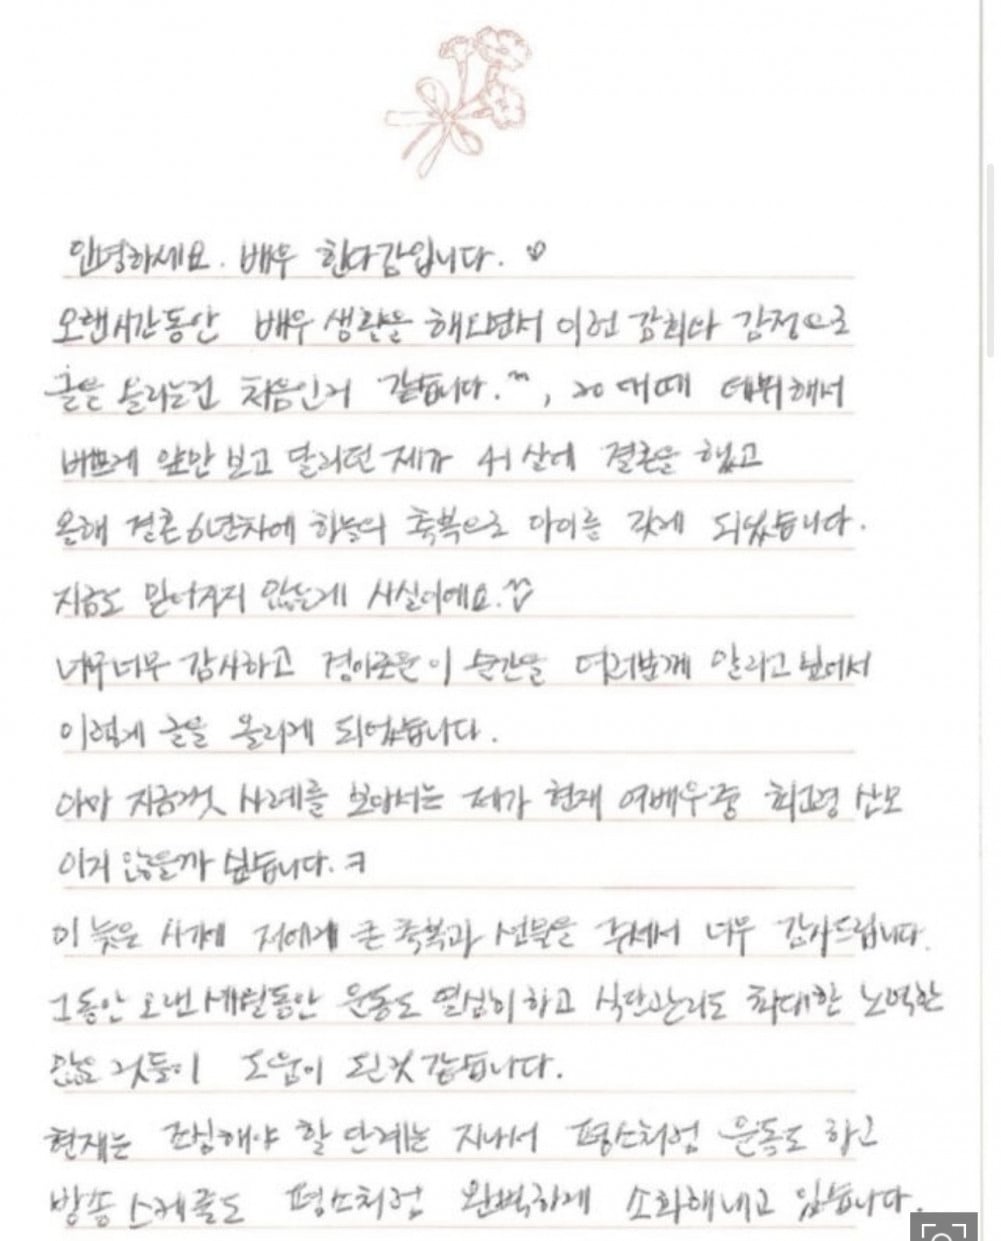 안녕하세요. 배우 한다감입니다. ♡
오랜시간동안 배우 생활을 해오면서 이런 감회와 감정으로
글을 올리는건 처음인거 같습니다.^^, 20대때 데뷔해서
바쁘게 앞만 보고 달리던 제가 41살에 결혼을 했고
올해 결혼 6년차에 하늘의 축복으로 아이를 갖게 되었습니다.
지금도 믿어지지 않는게 사실이에요.
너무너무 감사하고 경이로운 이 순간을 여러분께 알리고 싶어서
이렇게 글을 올리게 되었습니다.
아마 지금껏 사례를 보아서는 제가 현재 여배우중 최고령 산모
이지 않을까 싶습니다.ㅋ
이 늦은 시기에 저에게 큰 축복과 선물을 주셔서 너무 감사드립니다.
그동안 오랜 세월동안 운동도 열심히 하고 식단관리도 최대한 노력한
많은 것들이 도움이 된것 같습니다.
현재는 조심해야 할 단계는 지나서 평소처럼 운동도 하고
방송 스케줄도 평소처럼 완벽하게 소화해내고 있습니다.